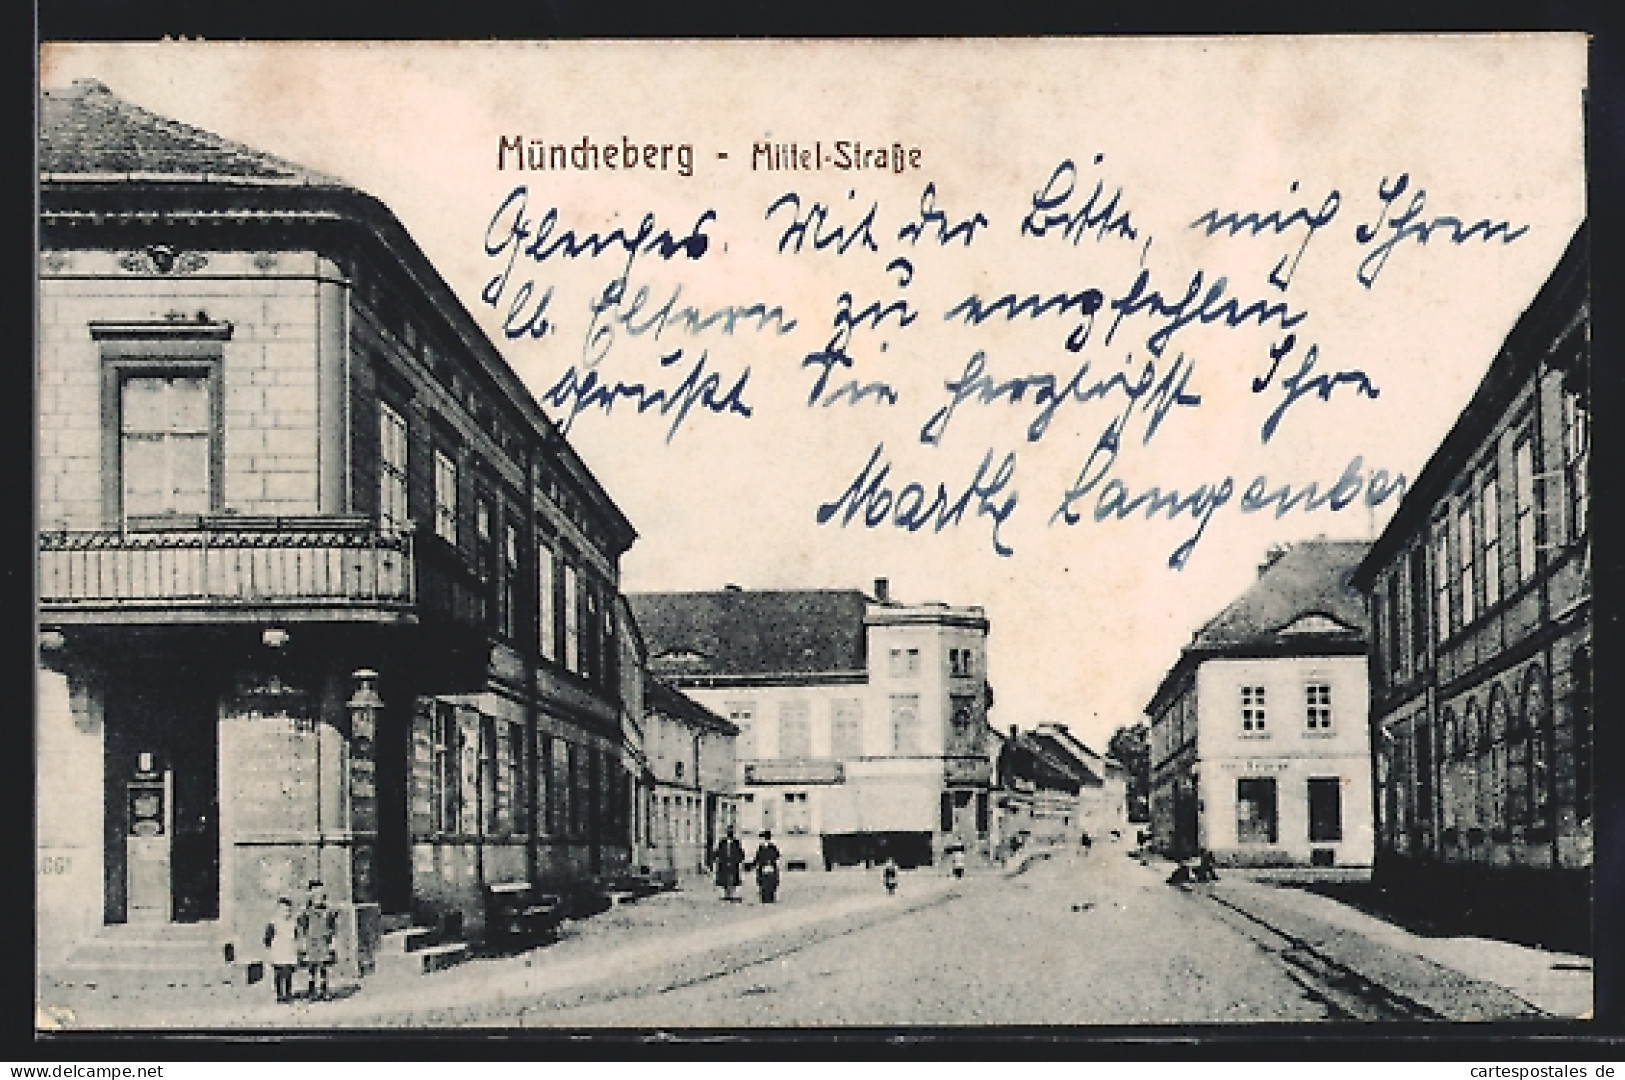 Müncheberg - Mittel-Straße
Gleiches. Mit der Bitte, mich Ihren
lb. Eltern zu empfehlen
grüßt Sie herzlichst Ihre
Marthe Langenber
GGI
www.cartespostales.de
cartespostales de